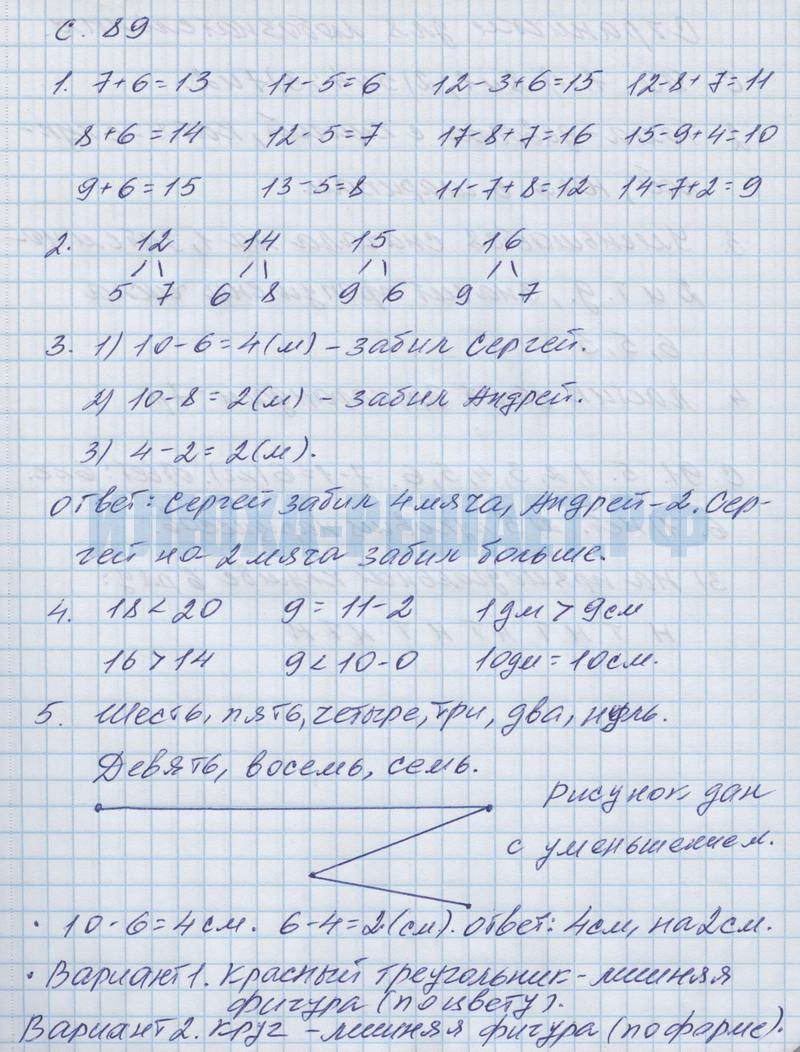 с. 89
1. 7+6=13 11-5=6 12-3+6=15 12-8+7=11
8+6=14 12-5=7 17-8+7=16 15-9+4=10
9+6=15 13-5=8 11-7+8=12 14-7+2=9
2. 12 14 15 16
5 7 6 8 9 6 9 7
3. 1) 10-6=4(м) - забил Сергей.
2) 10-8=2(м) - забил Андрей.
3) 4-2=2(м).
Ответ: Сергей забил 4 мяча, Андрей-2. Сер-
гей на 2 мяча забил больше.
4. 18<20 9=11-2 1дм>9см
16>14 9<10-0 10дм=10см.
5. Шесть, пять, четыре, три, два, нуль.
Девять, восемь, семь.
Рисунок дан
с уменьшением.
· 10-6=4см. 6-4=2(см). Ответ: 4см, на 2см.
· Вариант 1. Красный треугольник - лишняя
фигура (по цвету).
Вариант 2. Круг - лишняя фигура (по форме).